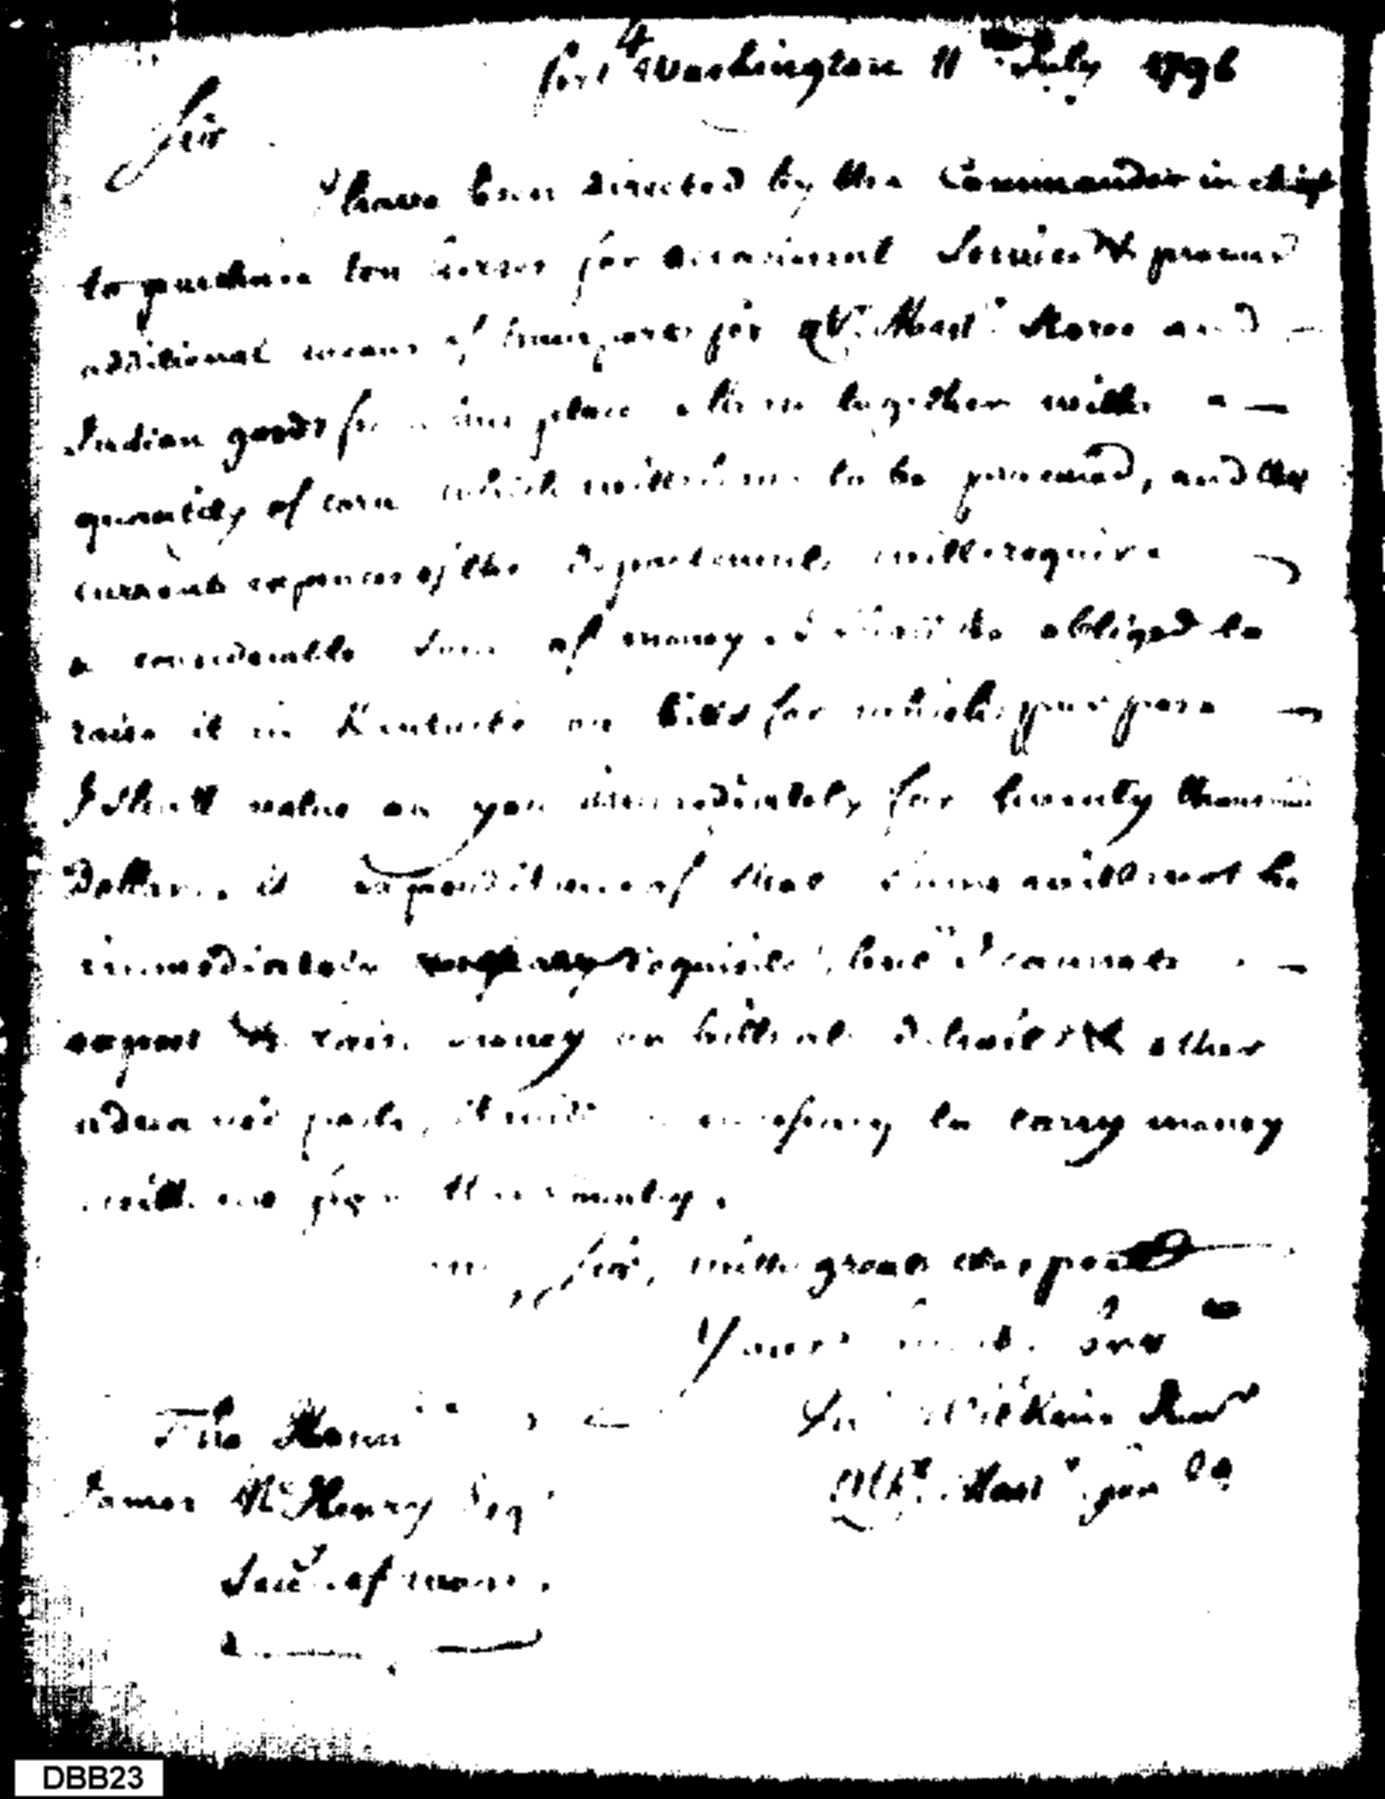 4
Fort Washington 11th July 1796
Sir
I have been directed by the Commander in chief
to purchase ten horses for occasional Service & procure
additional means of transport for Qr. Mastrs Stores and
Indian goods from this place
together with a
quantity of corn which will have to be procured, and the
current expences of the department, will require
a considerable Sum of money I shall be obliged to
raise it in Kentucke on bills for which purpose
I Shall value on you immediately for twenty thousand
Dollars, expenditure of that sum will not be
immediately requisite, but I cannot
expect to raise money on bills at Detroit & other
advanced posts, it will be necessary to carry money
with me from this Country.
Sir, with great respect
Your
The Honble
Jn Wilkins Junr
James McHenry Esqr
Qr. Mastr. gen
Secy. of war.
DBB23